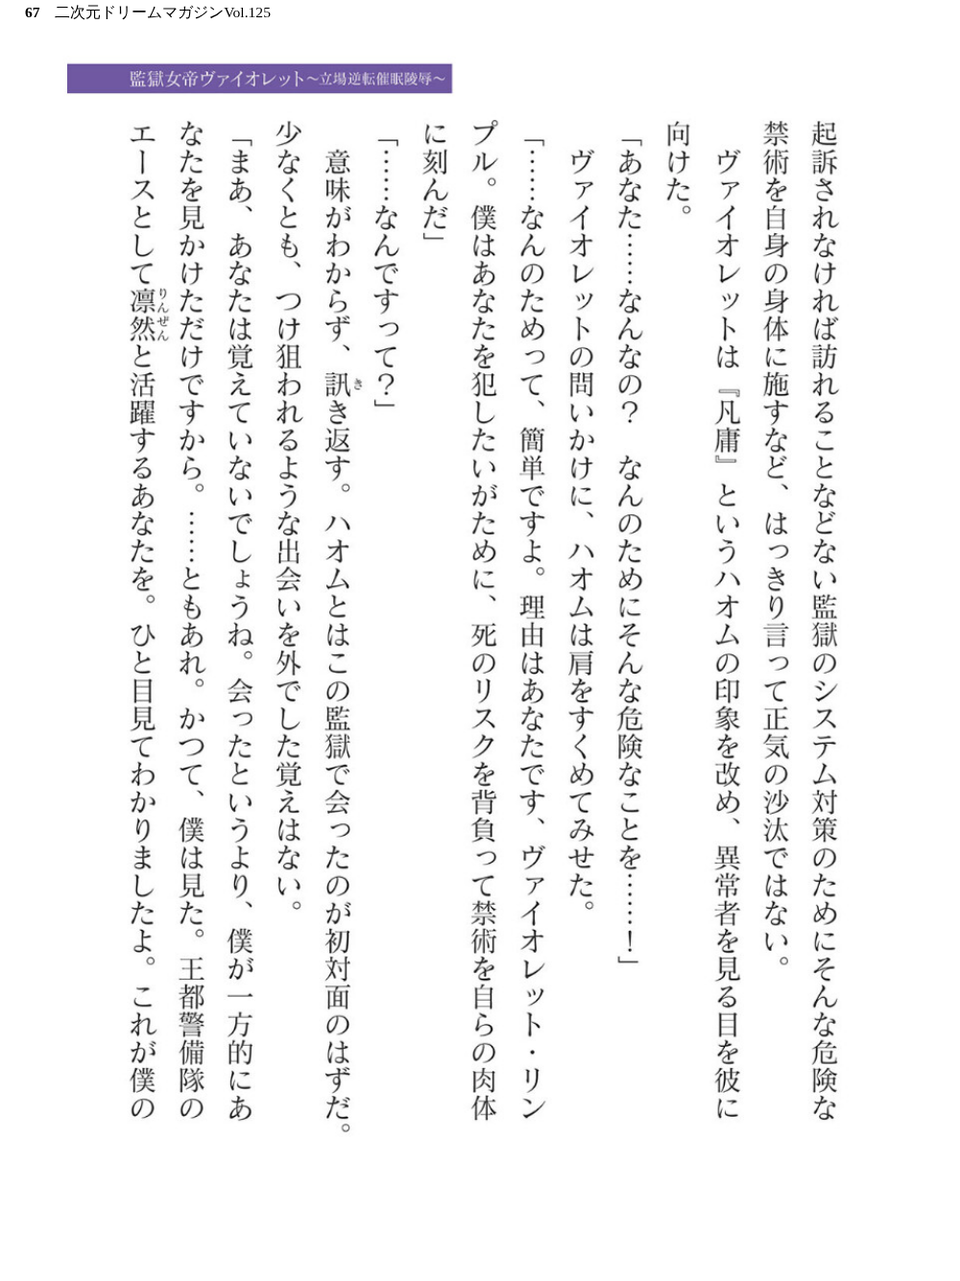 67 二次元ドリームマガジンVol.125
監獄女帝ヴァイオレット～立場逆転催眠陵辱～
起訴されなければ訪れることなどない監獄のシステム対策のためにそんな危険な
禁術を自身の身体に施すなど、はっきり言って正気の沙汰ではない。
　ヴァイオレットは『凡庸』というハオムの印象を改め、異常者を見る目を彼に
向けた。
「あなた……なんなの？　なんのためにそんな危険なことを……！」
　ヴァイオレットの問いかけに、ハオムは肩をすくめてみせた。
「……なんのためって、簡単ですよ。理由はあなたです、ヴァイオレット・リン
プル。僕はあなたを犯したいがために、死のリスクを背負って禁術を自らの肉体
に刻んだ」
「……なんですって？」
　意味がわからず、訊き返す。ハオムとはこの監獄で会ったのが初対面のはずだ。
少なくとも、つけ狙われるような出会いを外でした覚えはない。
「まあ、あなたは覚えていないでしょうね。会ったというより、僕が一方的にあ
なたを見かけただけですから。……ともあれ。かつて、僕は見た。王都警備隊の
エースとして凛然と活躍するあなたを。ひと目見てわかりましたよ。これが僕の
き
りんぜん